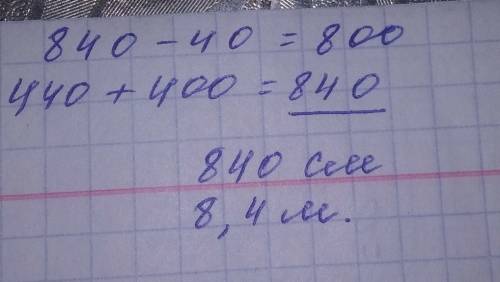 840 - 40 = 800
440 + 400 = 840
840 см
8,4 м.